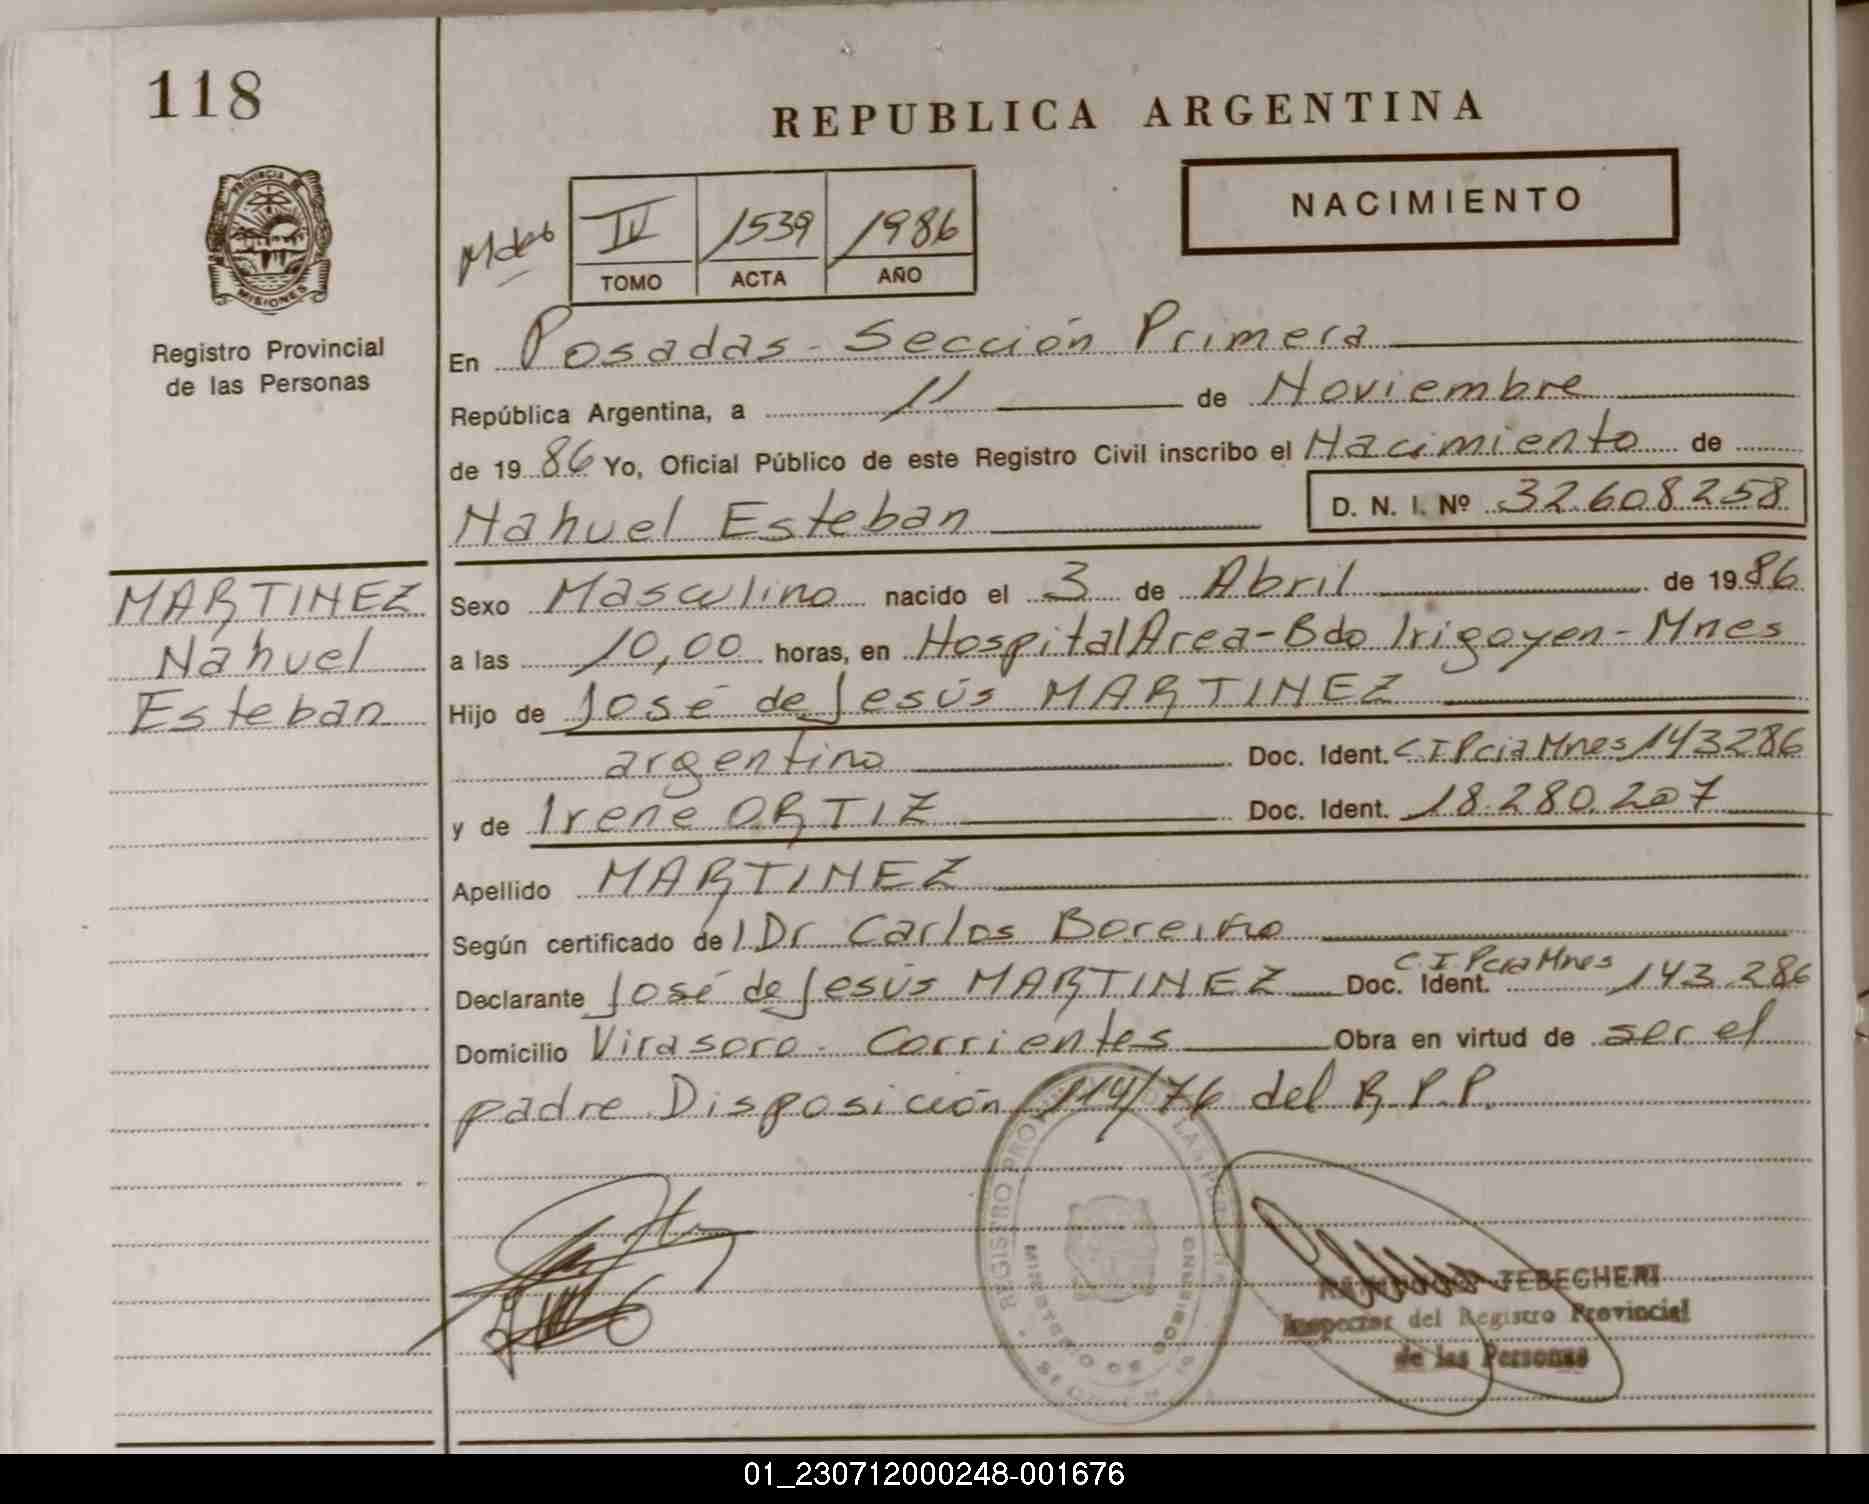 118
REPUBLICA ARGENTINA
PROVINCIA DE
MISIONES
Registro Provincial
de las Personas
NACIMIENTO
IV 1539 1986
TOMO ACTA AÑO
En Posadas - Sección Primera
República Argentina, a 11 de Noviembre
de 1986 Yo, Oficial Público de este Registro Civil inscribo el Nacimiento de
Nahuel Esteban D. N. I. Nº 32.608.258
MARTINEZ
Nahuel
Esteban
Sexo Masculino nacido el 3 de Abril de 1986
a las 10,00 horas, en Hospital Area - Bdo Irigoyen - Mnes
Hijo de José de Jesús MARTINEZ
argentino Doc. Ident. C.I.Pcia Mnes 143286
y de Irene ORTIZ Doc. Ident. 18.280.207
Apellido MARTINEZ
Según certificado del Dr Carlos
Declarante José de Jesús MARTINEZ Doc. Ident. C.I.Pcia Mnes 143.286
Domicilio Virasoro - Corrientes Obra en virtud de ser el
padre Disposición 114/76 del R.P.P.
REGISTRO
MINISTERIO DE GOBIERNO
JEBECHERI
Inspector del Registro Provincial
de las Personas
01_230712000248-001676